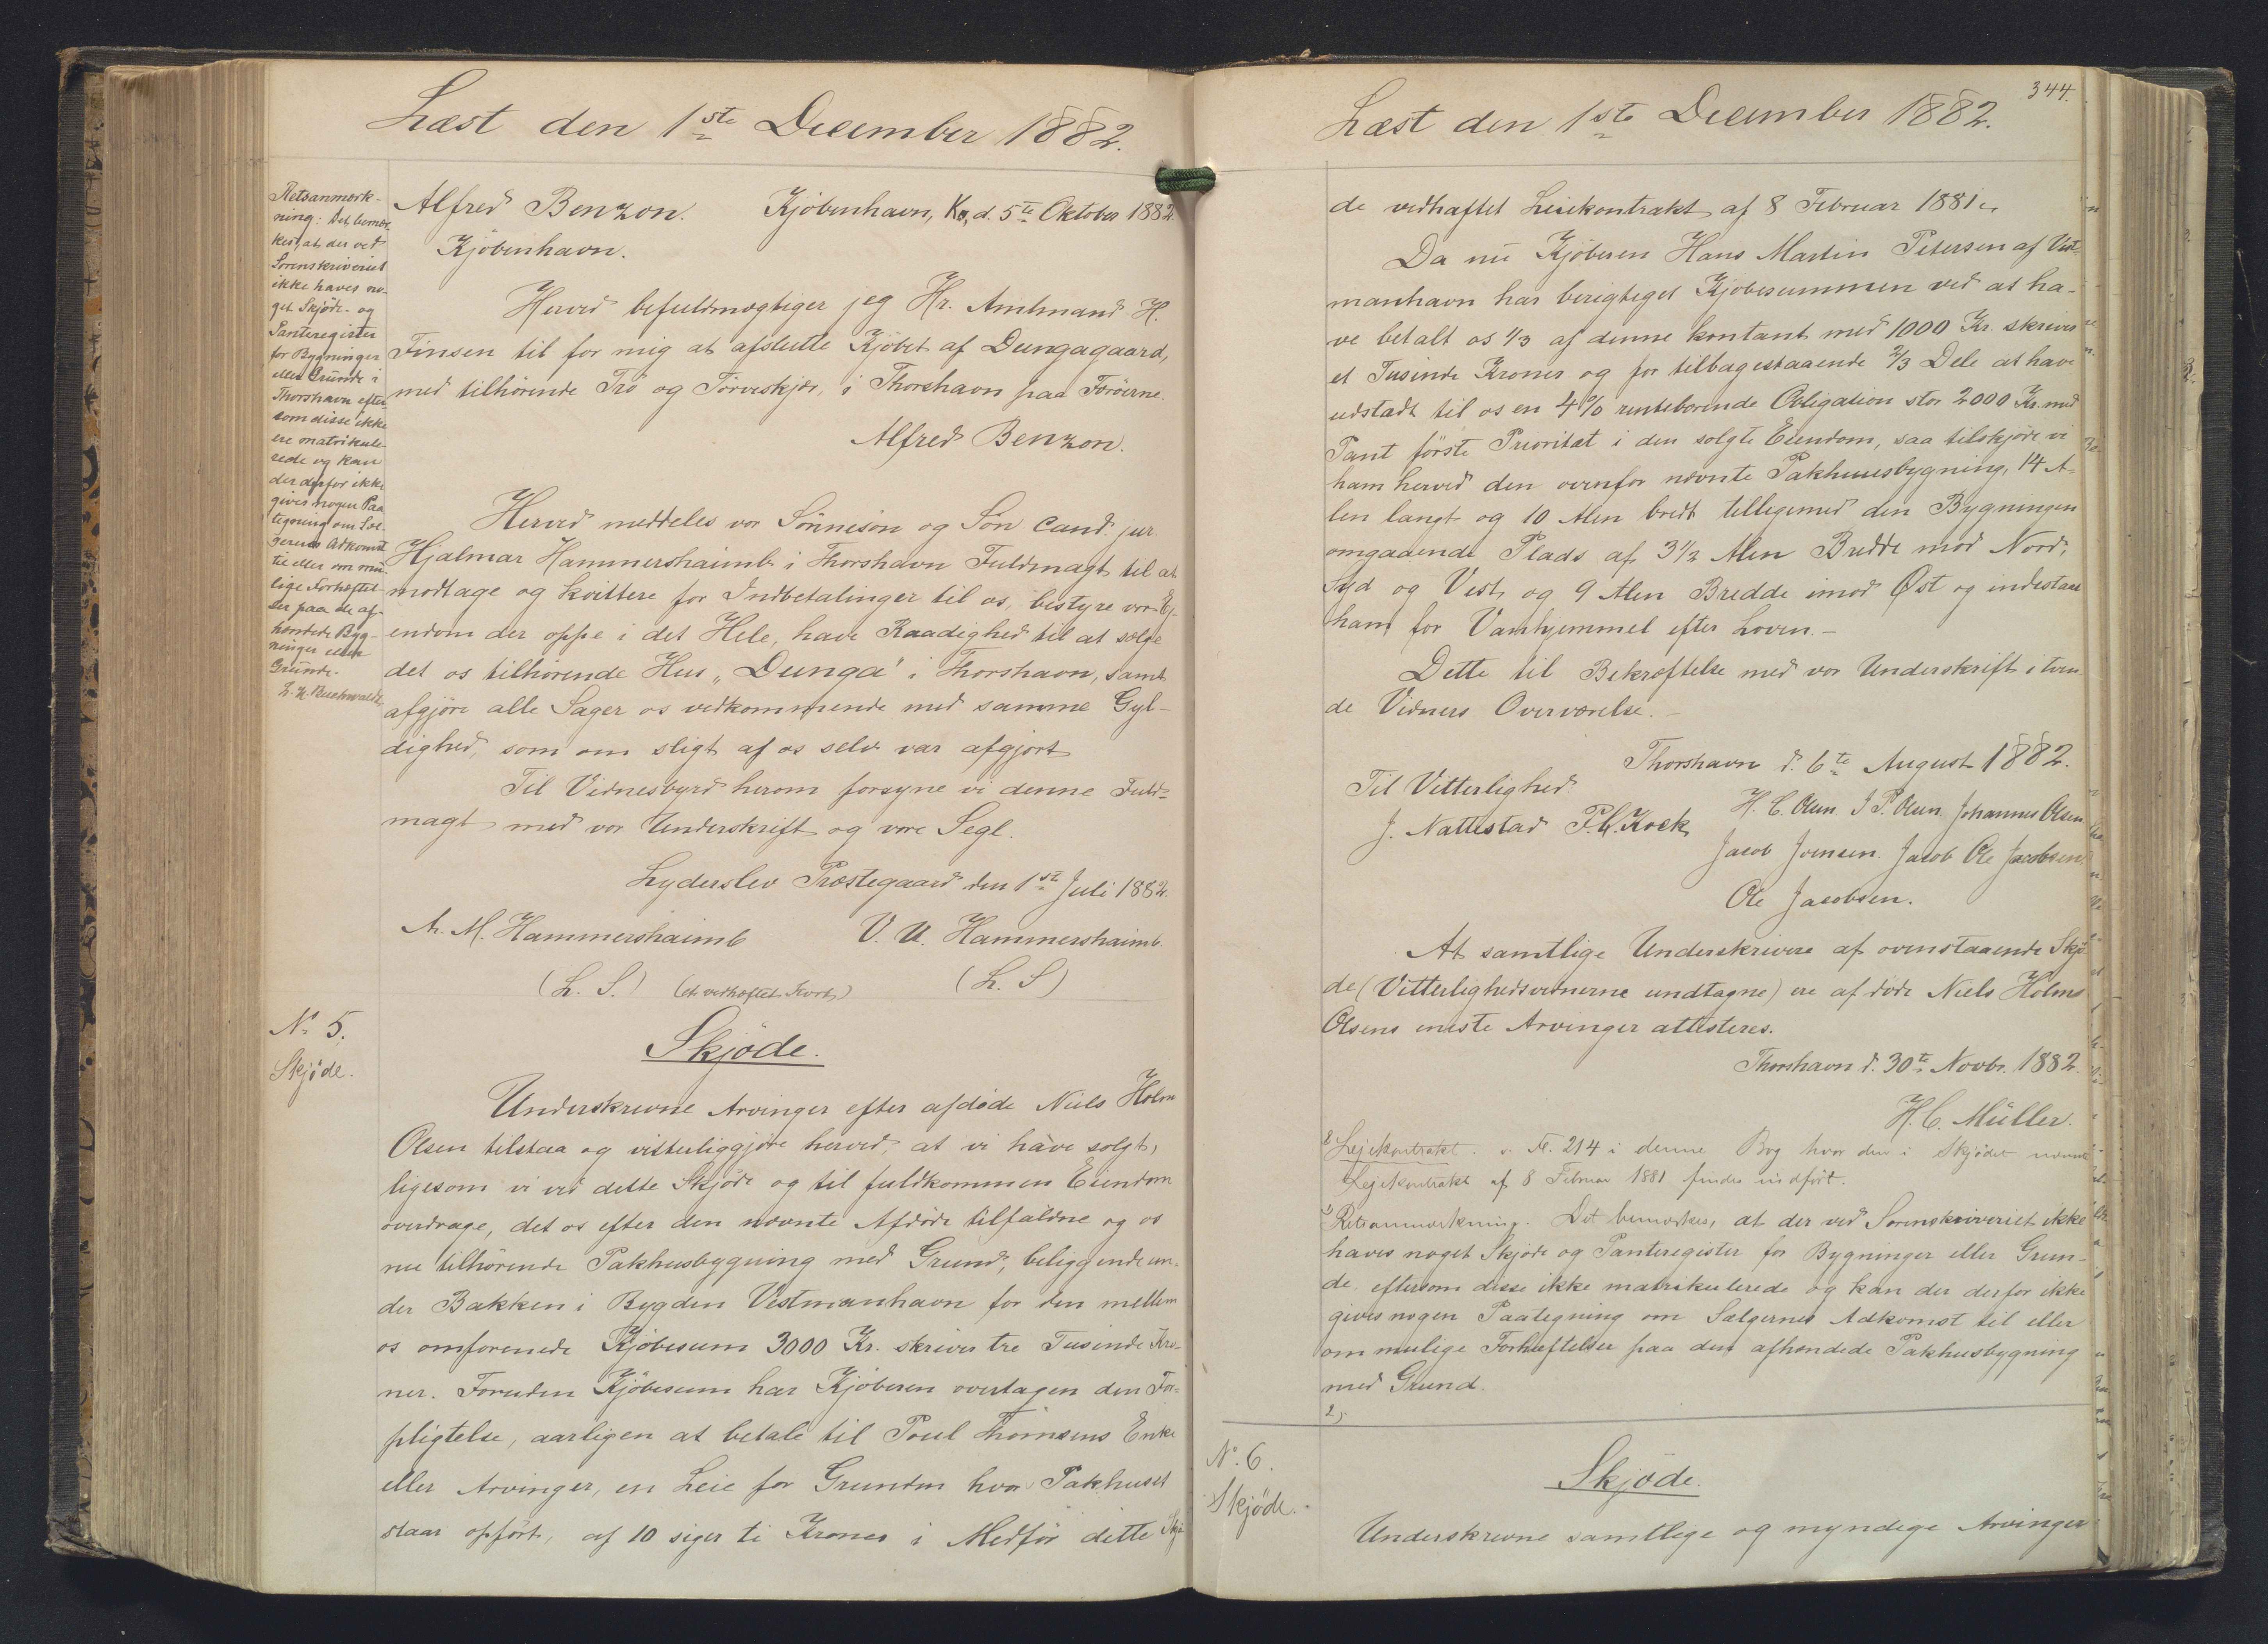 Læst den 1ste December 1882.
Retsanmærk-
ning: Det bemær-
kes, at der ved
Sorenskriveriet
ikke haves no-
get Skjøde- og
Panteregister
for Bygninger
eller Grunde i
Thorshavn efter-
som disse ikke
ere matrikule-
rede og kan
der derfor ikke
gives nogen Paa-
tegning om Sæl-
gerens Adkomst
til eller om mu-
lige Forhæftel-
ser paa de af-
hændede Byg-
ninger eller
Grunde.
Alfred Benzon. Kjöbenhavn, Kø, d. 5te Oktober 1882.
Kjöbenhavn.
Herved befuldmægtiger jeg Hr. Amtmand H.
Finsen til for mig at afslutte Kjöbet af Dungagaard,
med tilhörende Trö og Törveskjær, i Thorshavn paa Færöerne.
Alfred Benzon.
Herved meddeles vor Sönnesön og Sön Cand. jur.
Hjalmar Hammershaimb i Thorshavn Fuldmagt til at
modtage og kvittere for Indbetalinger til os, bestyre vor Ej-
endom der oppe i det Hele, have Raadighed til at sælge
det os tilhörende Hus „Dunga" i Thorshavn, samt
afgjöre alle Sager os vedkommende med samme Gyl-
dighed, som om sligt af os selv var afgjort
Til Vidnesbyrd herom forsyne vi denne Fuld-
magt med vor Underskrift og vore Segl.
Lyderslev Præstegaard den 1ste Juli 1882.
A. M. Hammershaimb V. U. Hammershaimb.
(L. S.) (et vedhæftet Kort) (L. S)
No 5.
Skjöde.
Skjöde.
Underskrevne Arvinger efter afdöde Niels Holm
Olsen tilstaa og vitterliggjöre herved, at vi have solgt,
ligesom vi ved dette Skjöde og til fuldkommen Eiendom
overdrage, det os efter den nævnte Afdöde tilfaldne og os
nu tilhörende Pakhusbygning med Grund, beliggende un-
der Bakken i Bygden Vestmanhavn for den mellem
os omforenede Kjöbesum 3000 Kr. skriver tre Tusinde Kro-
ner. Foruden Kjöbesum har Kjöberen overtagen den For-
pligtelse, aarligen at betale til Poul Thomsens Enke
eller Arvinger, en Leie for Grunden hvor Pakhuset
staar opfört, af 10 siger ti Kroner i Medför dette Skjö-
344.
Læst den 1ste December 1882.
de vedhæftet Leiekontrakt af 8 Februar 1881.
Da nu Kjöberen Hans Martin Petersen af Vest-
manhavn har berigtiget Kjöbesummen ved at ha-
ve betalt os 1/3 af denne kontant med 1000 Kr. skriver
et Tusinde Kroner og for tilbagestaaende 2/3 Dele at have
udstadt til os en 4% rentebærende Obligation stor 2000 Kr. med
Pant förste Prioritæt i den solgte Eiendom, saa tilskjöde vi
ham herved den ovenfor nævnte Pakhuusbygning, 14 A-
len langt og 10 Alen bredt tilligemed den Bygningen
omgaaende Plads af 3 1/2 Alen Bredde mod Nord,
Syd og Vest, og 9 Alen Bredde imod Øst og indestaa
ham for Vanhjemmel efter Loven.-
Dette til Bekræftelse med vor Underskrift i tven-
de Vidners Overværelse.-
Thorshavn d. 6te August 1882.
Til Vitterlighed
J. Nattestad P. C. Kock H. C. Olsen. J. P. Olsen. Johannes Olsen
Jacob Joensen. Jacob Ole Jacobsen
Ole Jacobsen.
At samtlige Underskrivere af ovenstaaende Skjö-
de (Vitterlighedsvidnerne undtagne) ere af döde Niels Holms
Olsens eneste Arvinger attesteres.
Thorshavn d. 30te Novbr. 1882.
H. C. Müller.
Lejekontrakt. v. No. 214 i denne Bog hvor den i Skjödet nævnte
Lejekontrakt af 8 Februar 1881 findes indfört.
Retsanmærkning. Det bemærkes, at der ved Sorenskriveriet ikke
haves noget Skjöde og Panteregister for Bygninger eller Grun-
de eftersom disse ikke matrikulerede og kan der derfor ikke
gives nogen Paategning om Sælgernes Adkomst til eller
om mulige Forhæftelser paa den afhændede Pakhusbygning
med Grund.
No. 6.
Skjöde.
Skjöde.
Underskrevne samtlige og myndige Arvinger